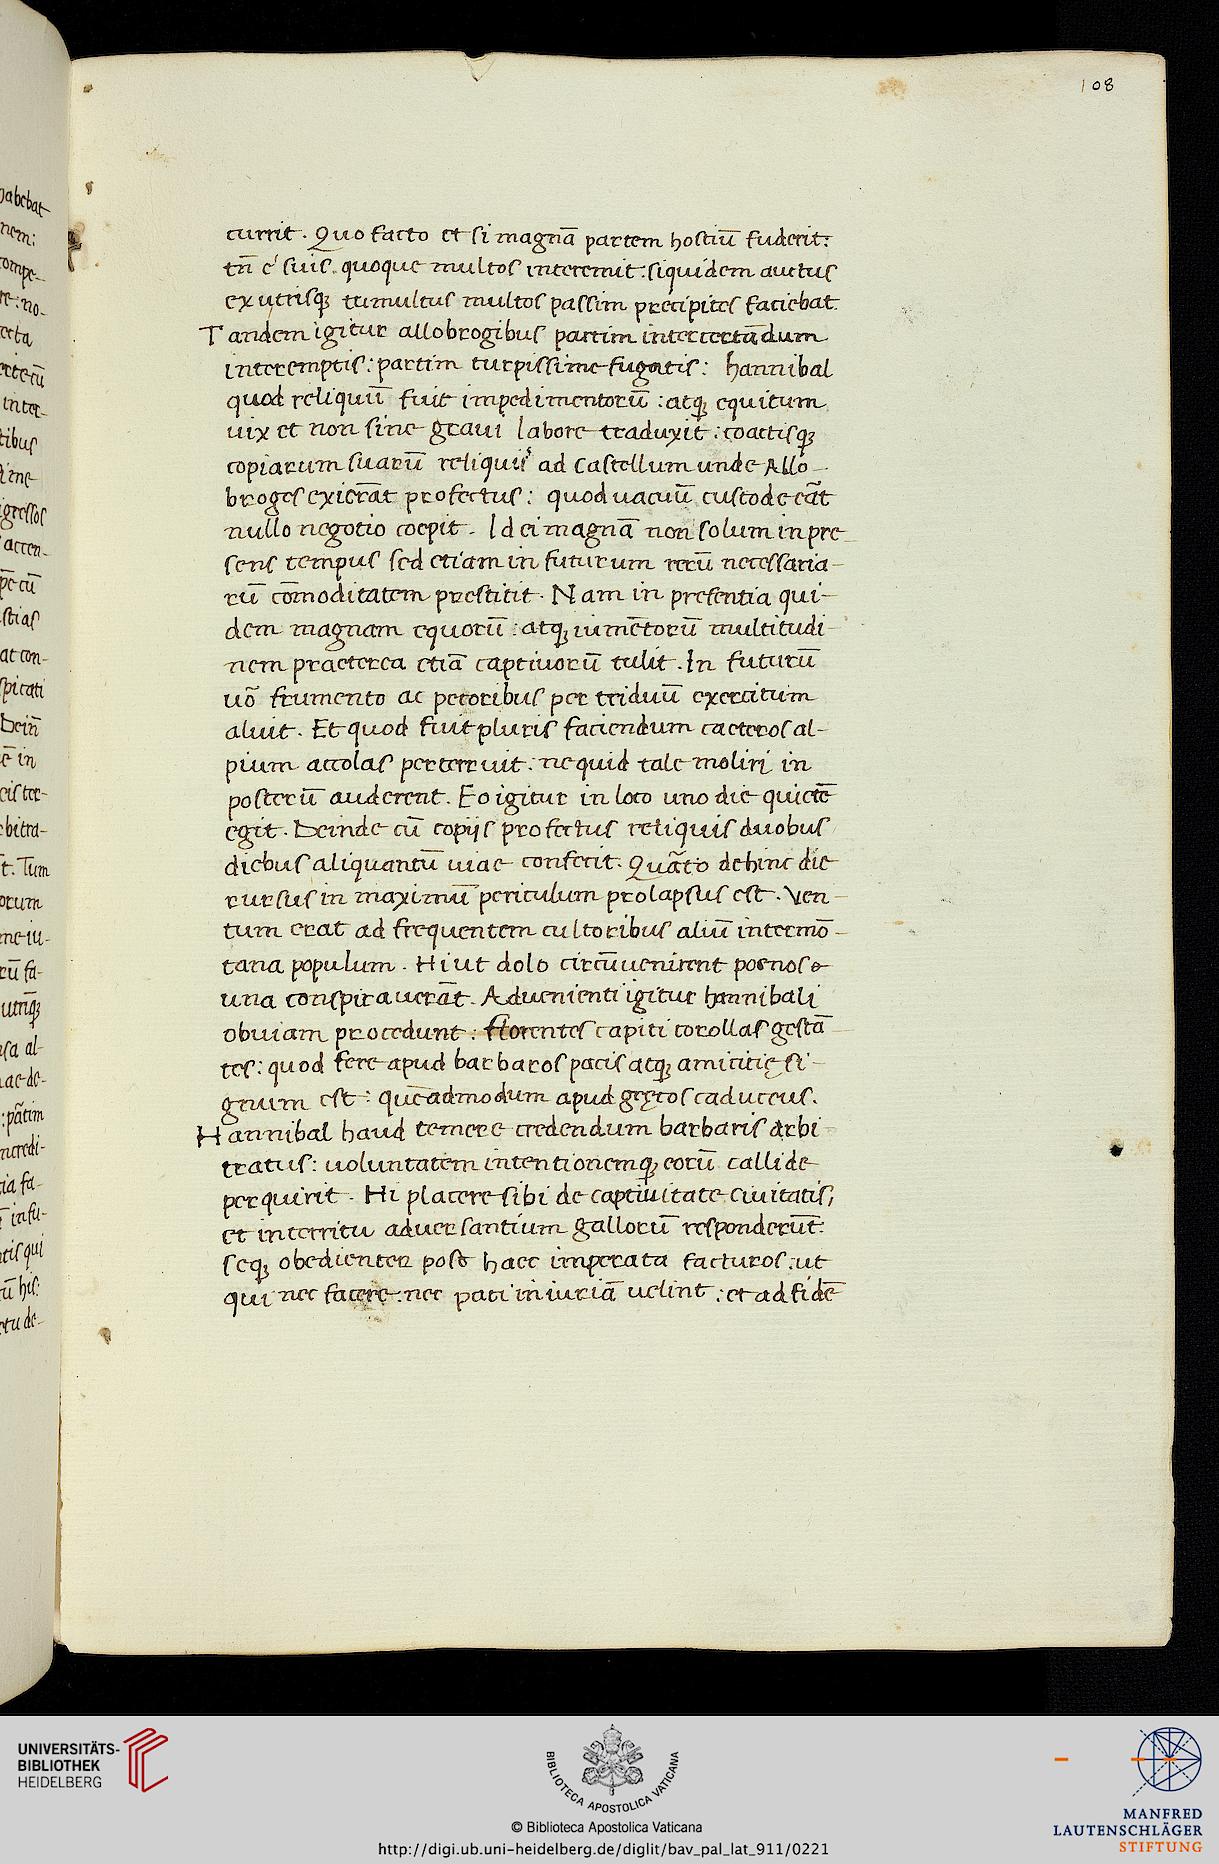 108
currit. Quo facto et si magnā partem hostiū fuderit:
tn̄ e suis quoque multos interemit: siquidem auctus
ex utrisq; tumultus multos passim precipites faciebat.
Tandem igitur allobrogibus partim intercertādum
interemptis: partim turpissime fugatis: hannibal
quod reliquū fuit impedimentorū: atq; equitum
uix et non sine graui labore traduxit: coactisq;
copiarum suarū reliquis ad castellum unde Allo-
broges exierāt profectus: quod uacuū custode erāt
nullo negotio coepit. Id ei magnā non solum in pre-
sens tempus sed etiam in futurum rerū necessaria-
rū cōmoditatem prestitit. Nam in presentia qui-
dem magnam equorū: atq; iumētorū multitudi-
nem praeterea etiā captiuorū tulit. In futurū
uō frumento ac pecoribus per triduū exercitum
aluit. Et quod fuit pluris faciendum caeteros al-
pium accolas perterruit: ne quid tale moliri in
posterū auderent. Eo igitur in loco uno die quietē
egit. Deinde cū copijs profectus reliquis duobus
diebus aliquantū uiae confecit. Quāto dehinc die
rursus in maximū periculum prolapsus est. Ven-
tum erat ad frequentem cultoribus aliū intermō-
tana populum. Hi ut dolo circūuenirent poenos
una conspirauerāt. Aduenienti igitur hannibali
obuiam procedunt: florentes capiti corollas gestā-
tes: quod fere apud barbaros pacis atq; amicitię si-
gnum est: quēadmodum apud gręcos caduceus.
Hannibal haud temere credendum barbaris arbi-
tratus: uoluntatem intentionemq; eorū callide
perquirit. Hi placere sibi de captiuitate ciuitatis;
et interritu aduersantium gallorū responderūt:
seq; obedienter post haec imperata facturos: ut
qui nec facere: nec pati iniuriā uelint: et ad fidē
habebat
nem:
compe-
UNIVERSITÄTS-
BIBLIOTHEK
HEIDELBERG
BIBLIOTECA APOSTOLICA VATICANA
© Biblioteca Apostolica Vaticana
http://digi.ub.uni-heidelberg.de/diglit/bav_pal_lat_911/0221
MANFRED
LAUTENSCHLÄGER
STIFTUNG